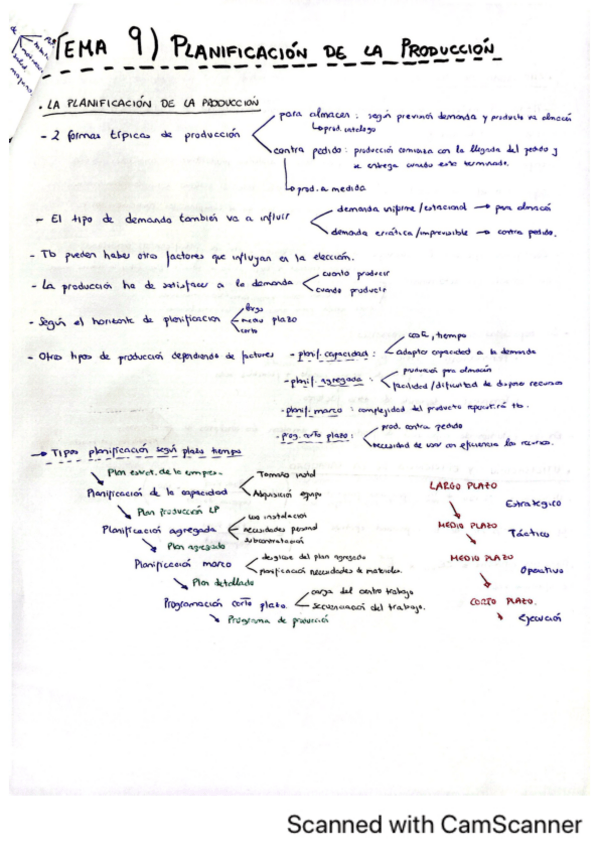 TEMA 9) PLANIFICACIÓN DE LA PRODUCCIÓN
. LA PLANIFICACIÓN DE LA PRODUCCIÓN
- 2 formas típicas de producción
para almacen : según previsión demanda y producto va almacén
↳ prod. catalogo
contra pedido : producción comienza con la llegada del pedido y
se entrega cuando este terminado.
↳ prod. a medida
- El tipo de demanda también va a influir
demanda uniforme/estacional → para almacén
demanda errática/imprevisible → contra pedido.
- Tb pueden haber otros factores que influyan en la elección.
- La producción ha de satisfacer a la demanda
cuanto producir
cuando producir
- Según el horizonte de planificación
largo
medio plazo
corto
- Otros tipos de producción dependiendo de factores
- planif. capacidad :
coste, tiempo
adaptar capacidad a la demanda
- planif. agregada :
producción para almacén
facilidad/dificultad de disponer recursos
- planif. marco : complejidad del producto repercutirá tb.
- prog. corto plazo :
prod. contra pedido
necesidad de usar con eficiencia los recursos.
→ TIPOS planificación según plazo tiempo
Plan estrat. de la empresa
Planificación de la capacidad
Tamaño instal
Adquisición equipo
Plan Producción LP
Planificación agregada
uso instalacion
necesidades personal
subcontratación
Plan agregado
Planificación marco
desglose del plan agregado
planificación necesidades de materiales.
Plan detallado
Programación corto plazo
carga del centro trabajo
secuenciación del trabajo.
Programa de producción
LARGO PLAZO
Estratégico
MEDIO PLAZO
Táctico
MEDIO PLAZO
Operativo
CORTO PLAZO.
Ejecución
Scanned with CamScanner